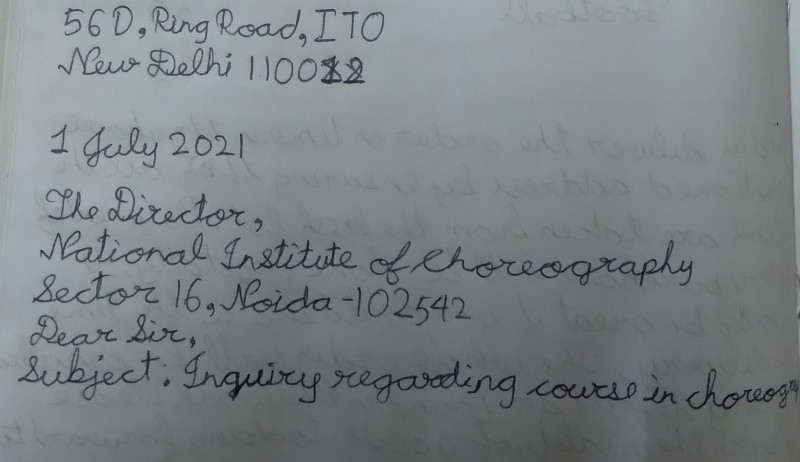 56D, Ring Road, ITO
New Delhi 110012
1 July 2021
The Director,
National Institute of Choreography
Sector 16, Noida-102542
Dear Sir,
Subject: Inquiry regarding course in